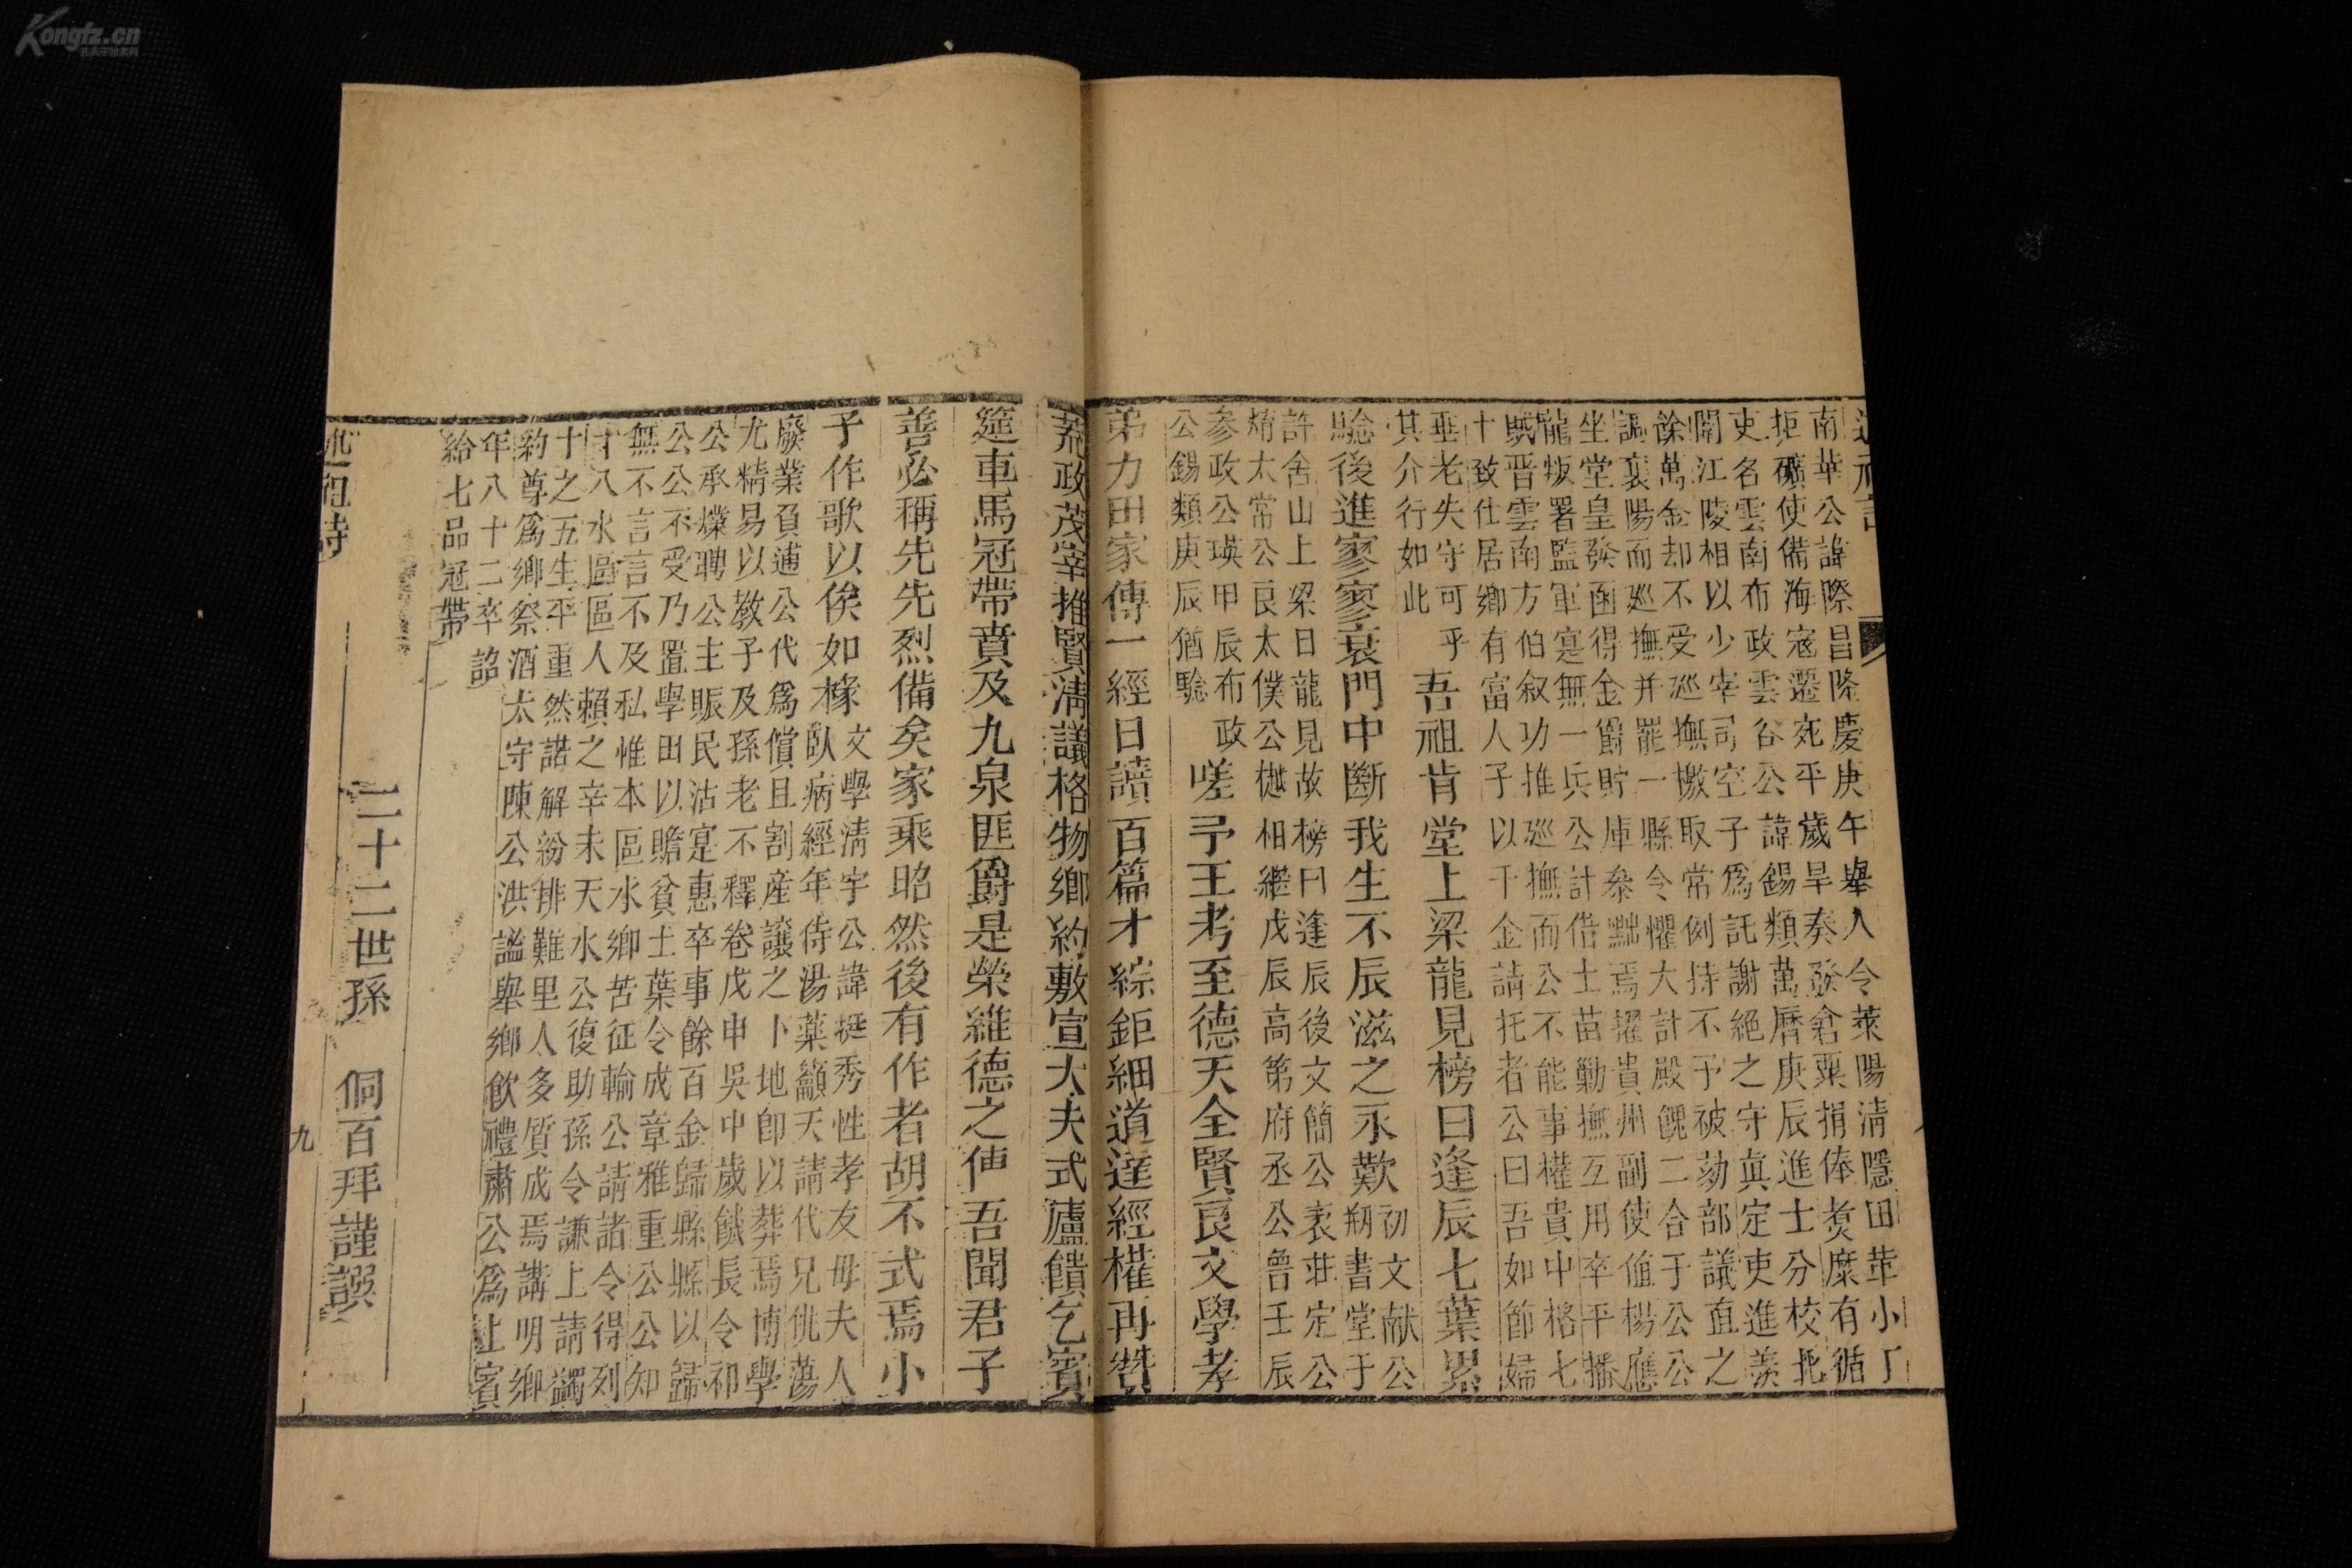 南華公諱際昌隆慶庚午舉人令萊陽清隱田華小丁
拒礦使備海寇遷兗平歲旱奏發倉粟捐俸煑糜有循
吏名雲南布政雲谷公諱錫類萬曆庚辰進士分校北
闈江陵相以少宰司空子爲託謝絕之守真定吏進羨
餘萬金却不受廵撫檄取常例持不予被劾部議直之
謳襄陽而廵撫并罷一縣令懼大計殿餽二合于公公
坐堂皇發函得金爵貯庫叅黜焉擢貴州副使值楊應
龍叛署監軍寔無一兵公計借土苗勦撫互用卒平播
賊晉雲南方伯叙功推巡撫而公不能事權貴中格七
十致仕居鄉有富人子以千金請托者公曰吾如節婦
垂老失守可乎
其介行如此
吾祖肯堂上梁龍見榜曰逢辰七葉累
騐後進寥寥衰門中斷我生不辰滋之永歎
初文献公
書堂于
許舍山上梁日龍見故榜曰逢辰後文簡公袤莊定公
靖太常公良太僕公樾相繼戊辰高第府丞公魯壬辰
参政公瑛甲辰布政
公錫類庚辰猶騐
嗟予王考至德天全賢良文學孝
弟力田家傳一經日讀百篇才綜鉅細道達經權再贊
荒政茂宰推賢淸議格物鄉約敷宣大夫式廬饋乞賓
筵車馬冠帶賁及九泉匪爵是榮維德之俥吾聞君子
善必稱先先烈備矣家乘昭然後有作者胡不式焉小
子作歌以俟如椽
文學淸宇公諱挺秀性孝友毋夫人
臥病經年侍湯藥籲天請代兄佻蕩
廢業負逋公代爲償且割産讓之卜地卽以葬焉博學
尤精易以敎子及孫老不釋卷戊申吳中歲饑長令祁
公承㸁聘公主賑民沾寔惠卒事餘百金歸縣縣以歸
公公不受乃置學田以贍貧士葉令成章雅重公公知
無不言言不及私惟本區水鄉苦征輸公請諸令得列
才八水區區人賴之辛未天水公復助孫令謙上請蠲
十之五生平重然諾解紛排難里人多質成焉講明鄉
約尊爲鄉祭酒太守陳公洪謐舉鄉飲禮肅公爲上賓
年八十二卒詔
給七品冠帶
二十二世孫 侗百拜謹譔
述祖詩 九
Kongfz.cn